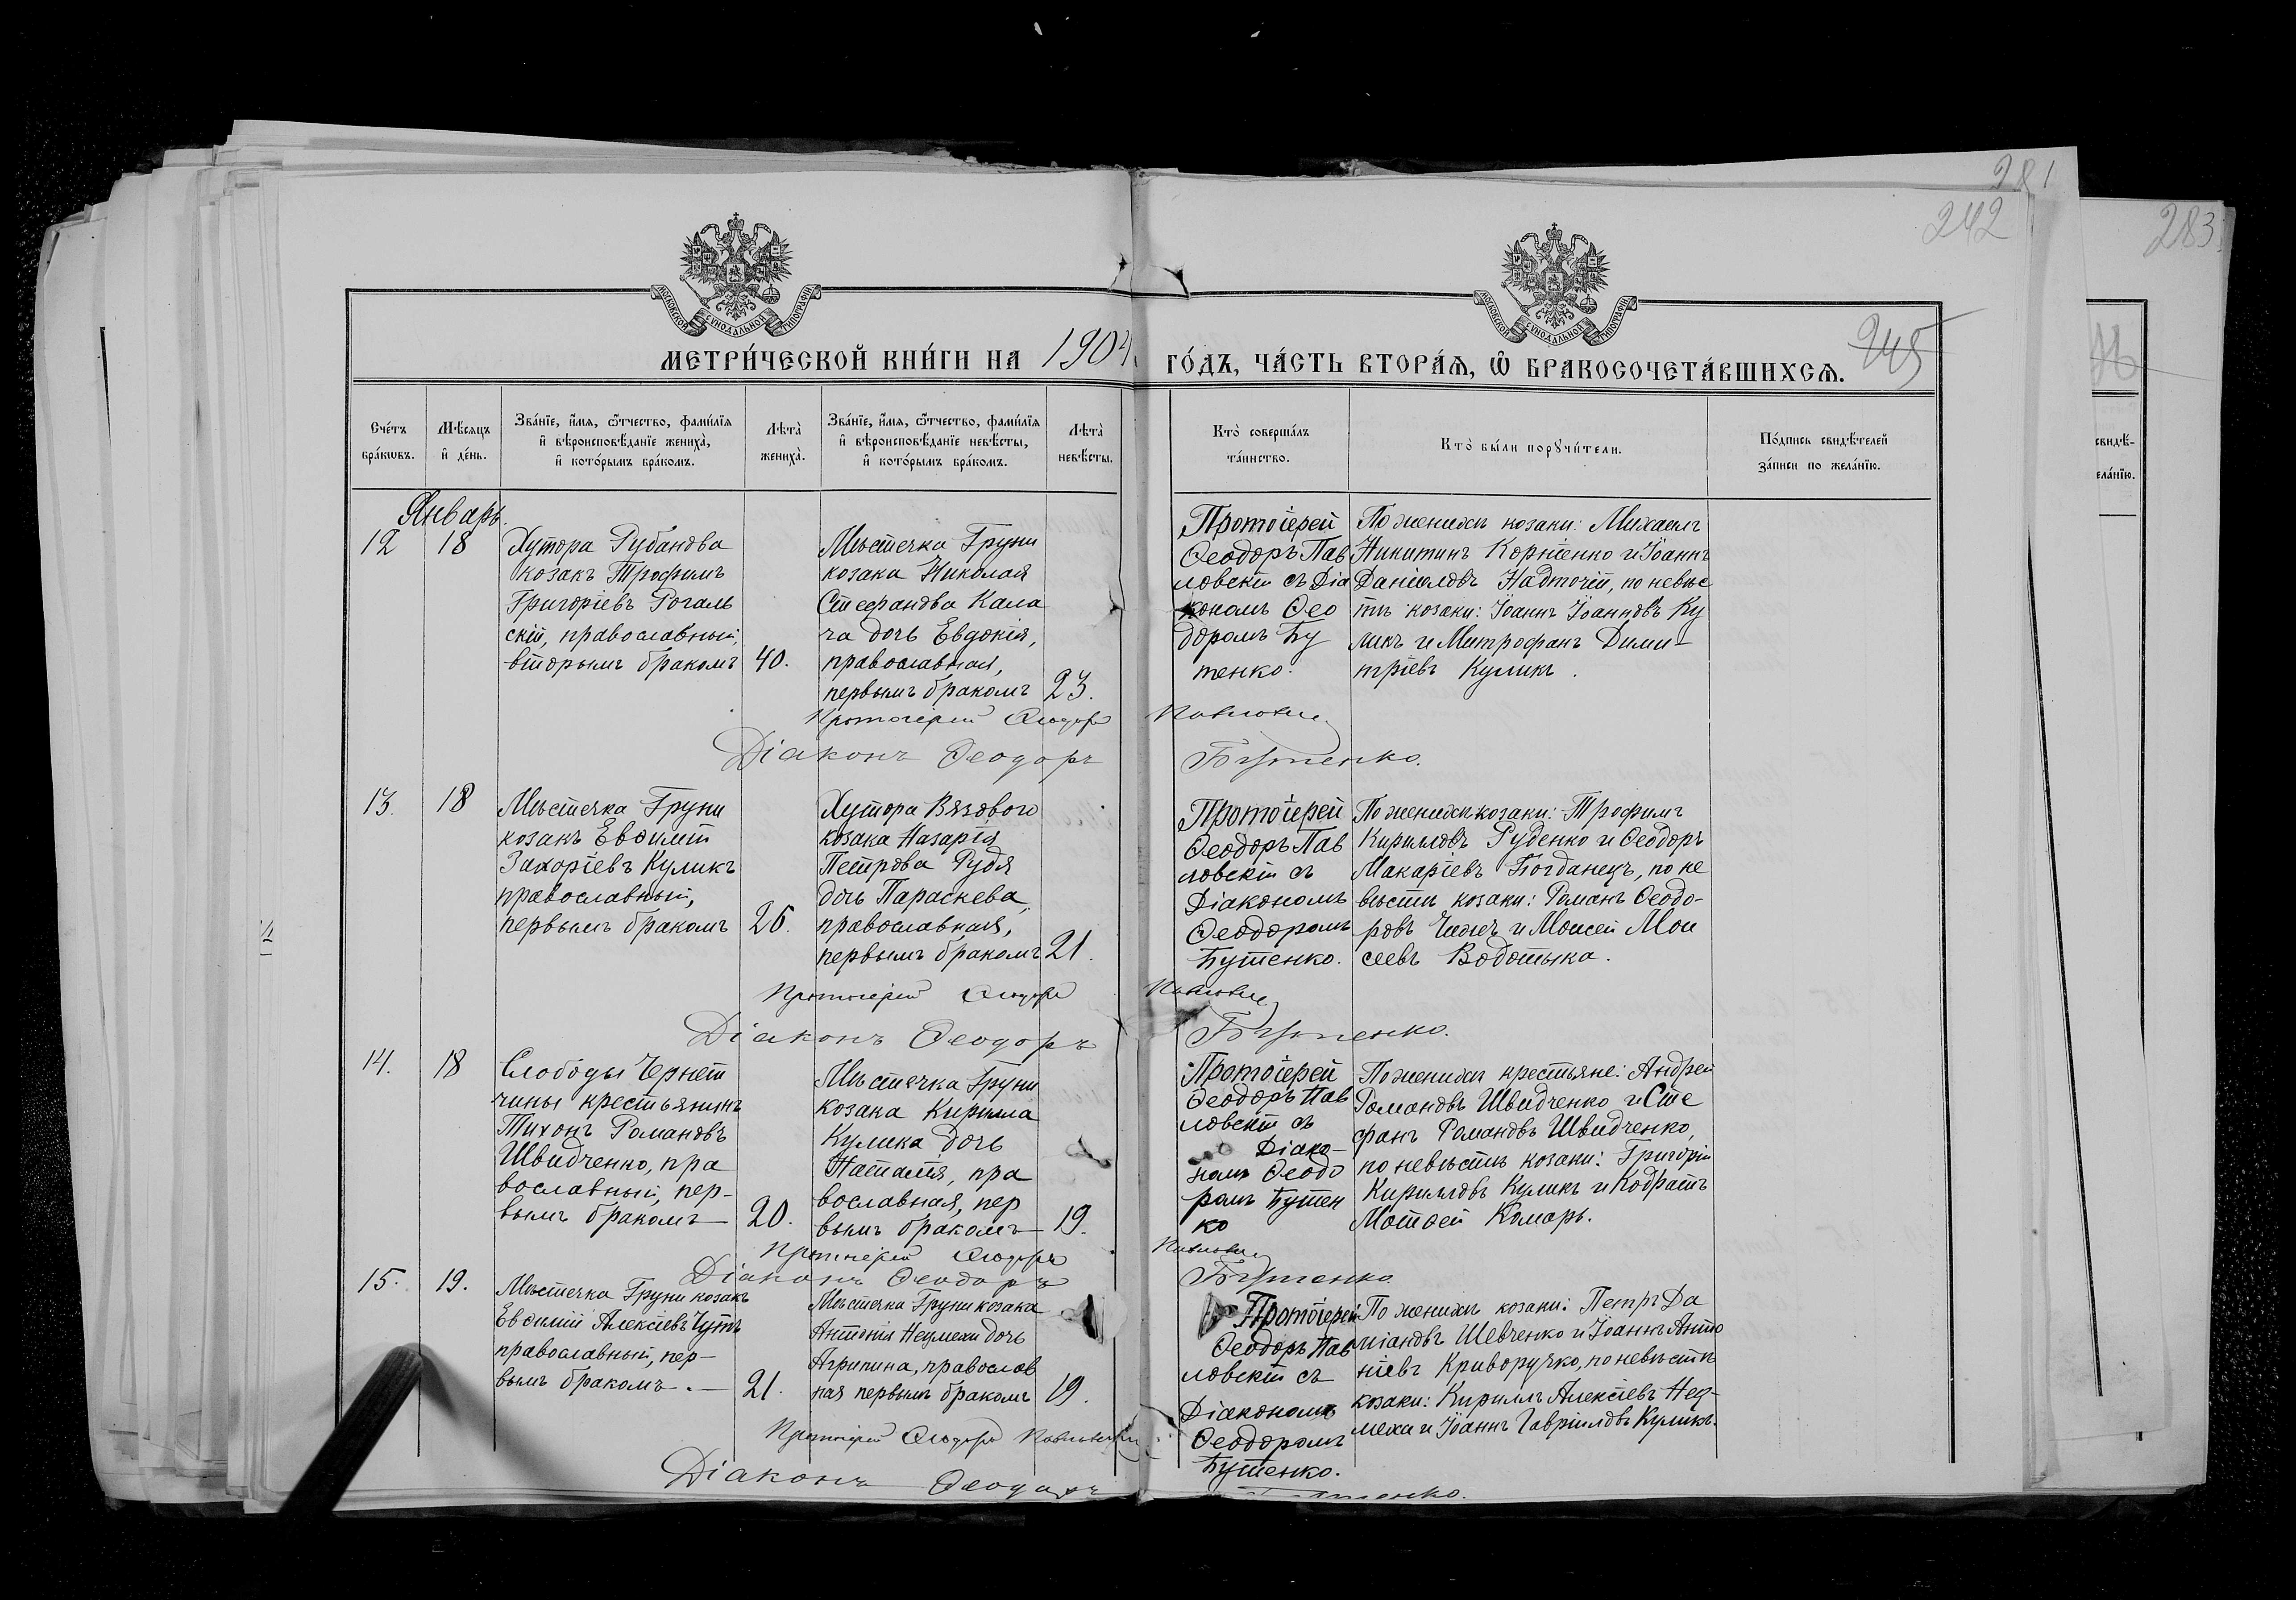 281
242
283
МОСКОВСКОЙ СѴНОДАЛЬНОЙ ТИПОГРАФІИ
МОСКОВСКОЙ СѴНОДАЛЬНОЙ ТИПОГРАФІИ
МЕТРИ́ЧЕСКОЙ КНИ́ГИ НА 1904 ГО́ДЪ, ЧА́СТЬ ВТОРА́Ѧ, Ѡ҆ БРАКОСОЧЕТА́ВШИХСѦ.
245
Сче́тъ бра́кѡвъ.
Мѣ́сяцъ и҆ де́нь.
Зва́нїе, и҆́мѧ, ѻ҆́тчество, фами́лїѧ и҆ вѣроисповѣ́данїе жениха̀, и҆ кото́рымъ бра́комъ.
Лѣта̀ жениха̀.
Зва́нїе, и҆́мѧ, ѻ҆́тчество, фами́лїѧ и҆ вѣроисповѣ́данїе невѣ́сты, и҆ кото́рымъ бра́комъ.
Лѣта̀ невѣ́сты.
Кто̀ соверша́лъ та́инство.
Кто̀ бы́ли порꙋчи́тели.
По́дпись свидѣ́телей за́писи по жела́нїю.
свидѣ́-
ела́нїю.
Январь.
12
18
Хутора Рубанова
козакъ Трофимъ
Григоріевъ Рогаль
скій, православный,
вторымъ бракомъ
40.
Мѣстечка Груни
козака Николая
Стефанова Кала
ча дочь Евдокія,
православная,
первымъ бракомъ
23.
Протоіерей
Ѳеодоръ Пав
ловскій съ Діа
кономъ Ѳео
доромъ Бу
тенко.
По женихѣ козаки: Михаилъ
Никитинъ Корніенко и Іоаннъ
Даніиловъ Надточій, по невѣс
тѣ козаки: Іоаннъ Іоанновъ Ку
ликъ и Митрофанъ Дими-
тріевъ Куликъ.
Протоіерей Ѳеодоръ Павловскій
Діаконъ Ѳеодоръ Бутенко.
13.
18
Мѣстечка Груни
козакъ Евфимій
Захоріевъ Куликъ
православный,
первымъ бракомъ
26.
Хутора Вязового
козака Назарія
Петрова Рудя
дочь Параскева,
православная,
первымъ бракомъ
21.
Протоіерей
Ѳеодоръ Пав
ловскій съ
Діакономъ
Ѳеодоромъ
Бутенко.
По женихѣ козаки: Трофимъ
Кирилловъ Руденко и Ѳеодоръ
Макаріевъ Богданецъ, по не
вѣстѣ козаки: Романъ Ѳеодо-
ровъ и Моисей Мои
сеевъ Водотыка.
Протоіерей Ѳеодоръ Павловскій
Діаконъ Ѳеодоръ Бутенко.
14.
18
Слободы Чернет
чины крестьянинъ
Тихонъ Романовъ
Швидченко, пра
вославный, пер-
вымъ бракомъ
20.
Мѣстечка Груни
козака Кирилла
Кулика дочь
Наталія, пра
вославная, пер
вымъ бракомъ
19.
Протоіерей
Ѳеодоръ Пав
ловскій съ
Діако-
номъ Ѳеодо
ромъ Бутен
ко
По женихѣ крестьяне: Андрей
Романовъ Швидченко и Сте
фанъ Романовъ Швидченко,
по невѣстѣ козаки: Григорій
Кирилловъ Куликъ и Кодратъ
Матѳей Комарь.
Протоіерей Ѳеодоръ Павловскій
Діаконъ Ѳеодоръ Бутенко
15.
19.
Мѣстечка Груни козакъ
Евфимій Алексіевъ
православный, пер-
вымъ бракомъ. —
21.
Мѣстечка Груни козака
Антонія Недмехи дочь
Агрипина, православ
ная первымъ бракомъ
19.
Протоіерей
Ѳеодоръ Пав
ловскій съ
Діакономъ
Ѳеодоромъ
Бутенко.
По женихѣ козаки: Петръ Да
міановъ Шевченко и Іоаннъ Анто
ніевъ Криворучко, по невѣстѣ
козаки: Кириллъ Алексіевъ Нед-
меха и Іоаннъ Гавріиловъ Куликъ.
Протоіерей Ѳеодоръ Павловскій
Діаконъ Ѳеодоръ Бутенко.